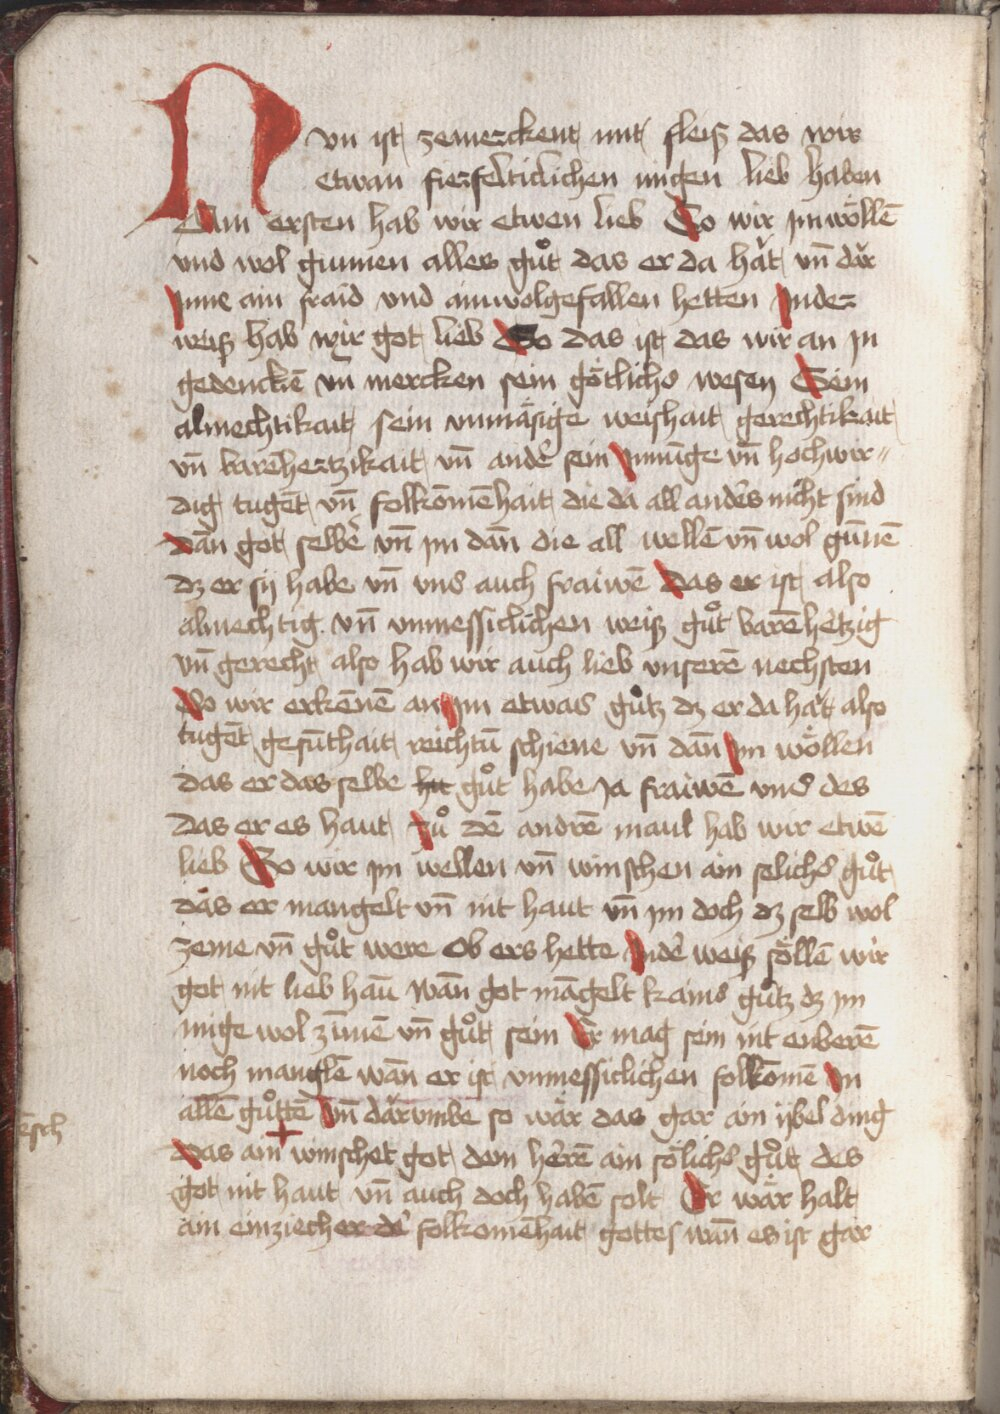 Nun ist zemerckent mit fleiß das wir
etwan fierfelticlichen migen lieb haben
Am ersten hab wir etwen lieb So wir im wöllē
und wol gunnen alles gůt das er da hǎt vn̄ dǎr
jnne ain fraid vnd ain wolgefallen hetten jn der
weiß hab wir got lieb So das ist das wir an jn
gedenckē vn̄ mercken sein götlichs wesen Sein
almechtikait sein vnmäsige weishait gerechtikait
vn̄ barēhertzikait vn̄ andˀ sein jnnn̄ge vn̄ hochwir⸗
dig tugēt vn̄ folkōmēhait die da all andˀs nicht sind
dān got selbˀ vn̄ jm dān die all wellē vn̄ wol gūnē
dz er sÿ habe vn̄ vns auch fraiwē das er ist also
almechtig vn̄ vnmessiclichen weiß gůt barēhˀtzig
vn̄ gerecht also hab wir auch lieb vnserē nechsten
So wir erkēnē an jm etwas gůtz dz er da hǎt also
tugēt gesūthait reichtū schiene vn̄ dān jm wöllen
das er das selbe gůt habe ja fraiwē vns des
das er es haut zů dē andrē maul hab wir etwē
lieb So wir jm wellen vn̄ winschen ain selichs gůt
das er mangelt vn̄ nit haut vn̄ jm doch dz selb wol
zeme vn̄ gůt were ob ers hette jn dˀ weiß söllē wir
got nit lieb haū wān got māgelt kains gůtz dz jm
mige wol zīmē vn̄ gůt sein Er mag sein nit enberē
noch manglē wān er ist vnmessiclichen folkōmē jn
allē gůttē vn̄ dǎrumbē so wär das gar ain ÿbel ding
das ain winschet got dem hˀrē ain sölichs gůt des
got nit haut vn̄ auch doch habē solt Er wär halt
ain einziecher dˀ folkomēhait gottes wān es ist gar